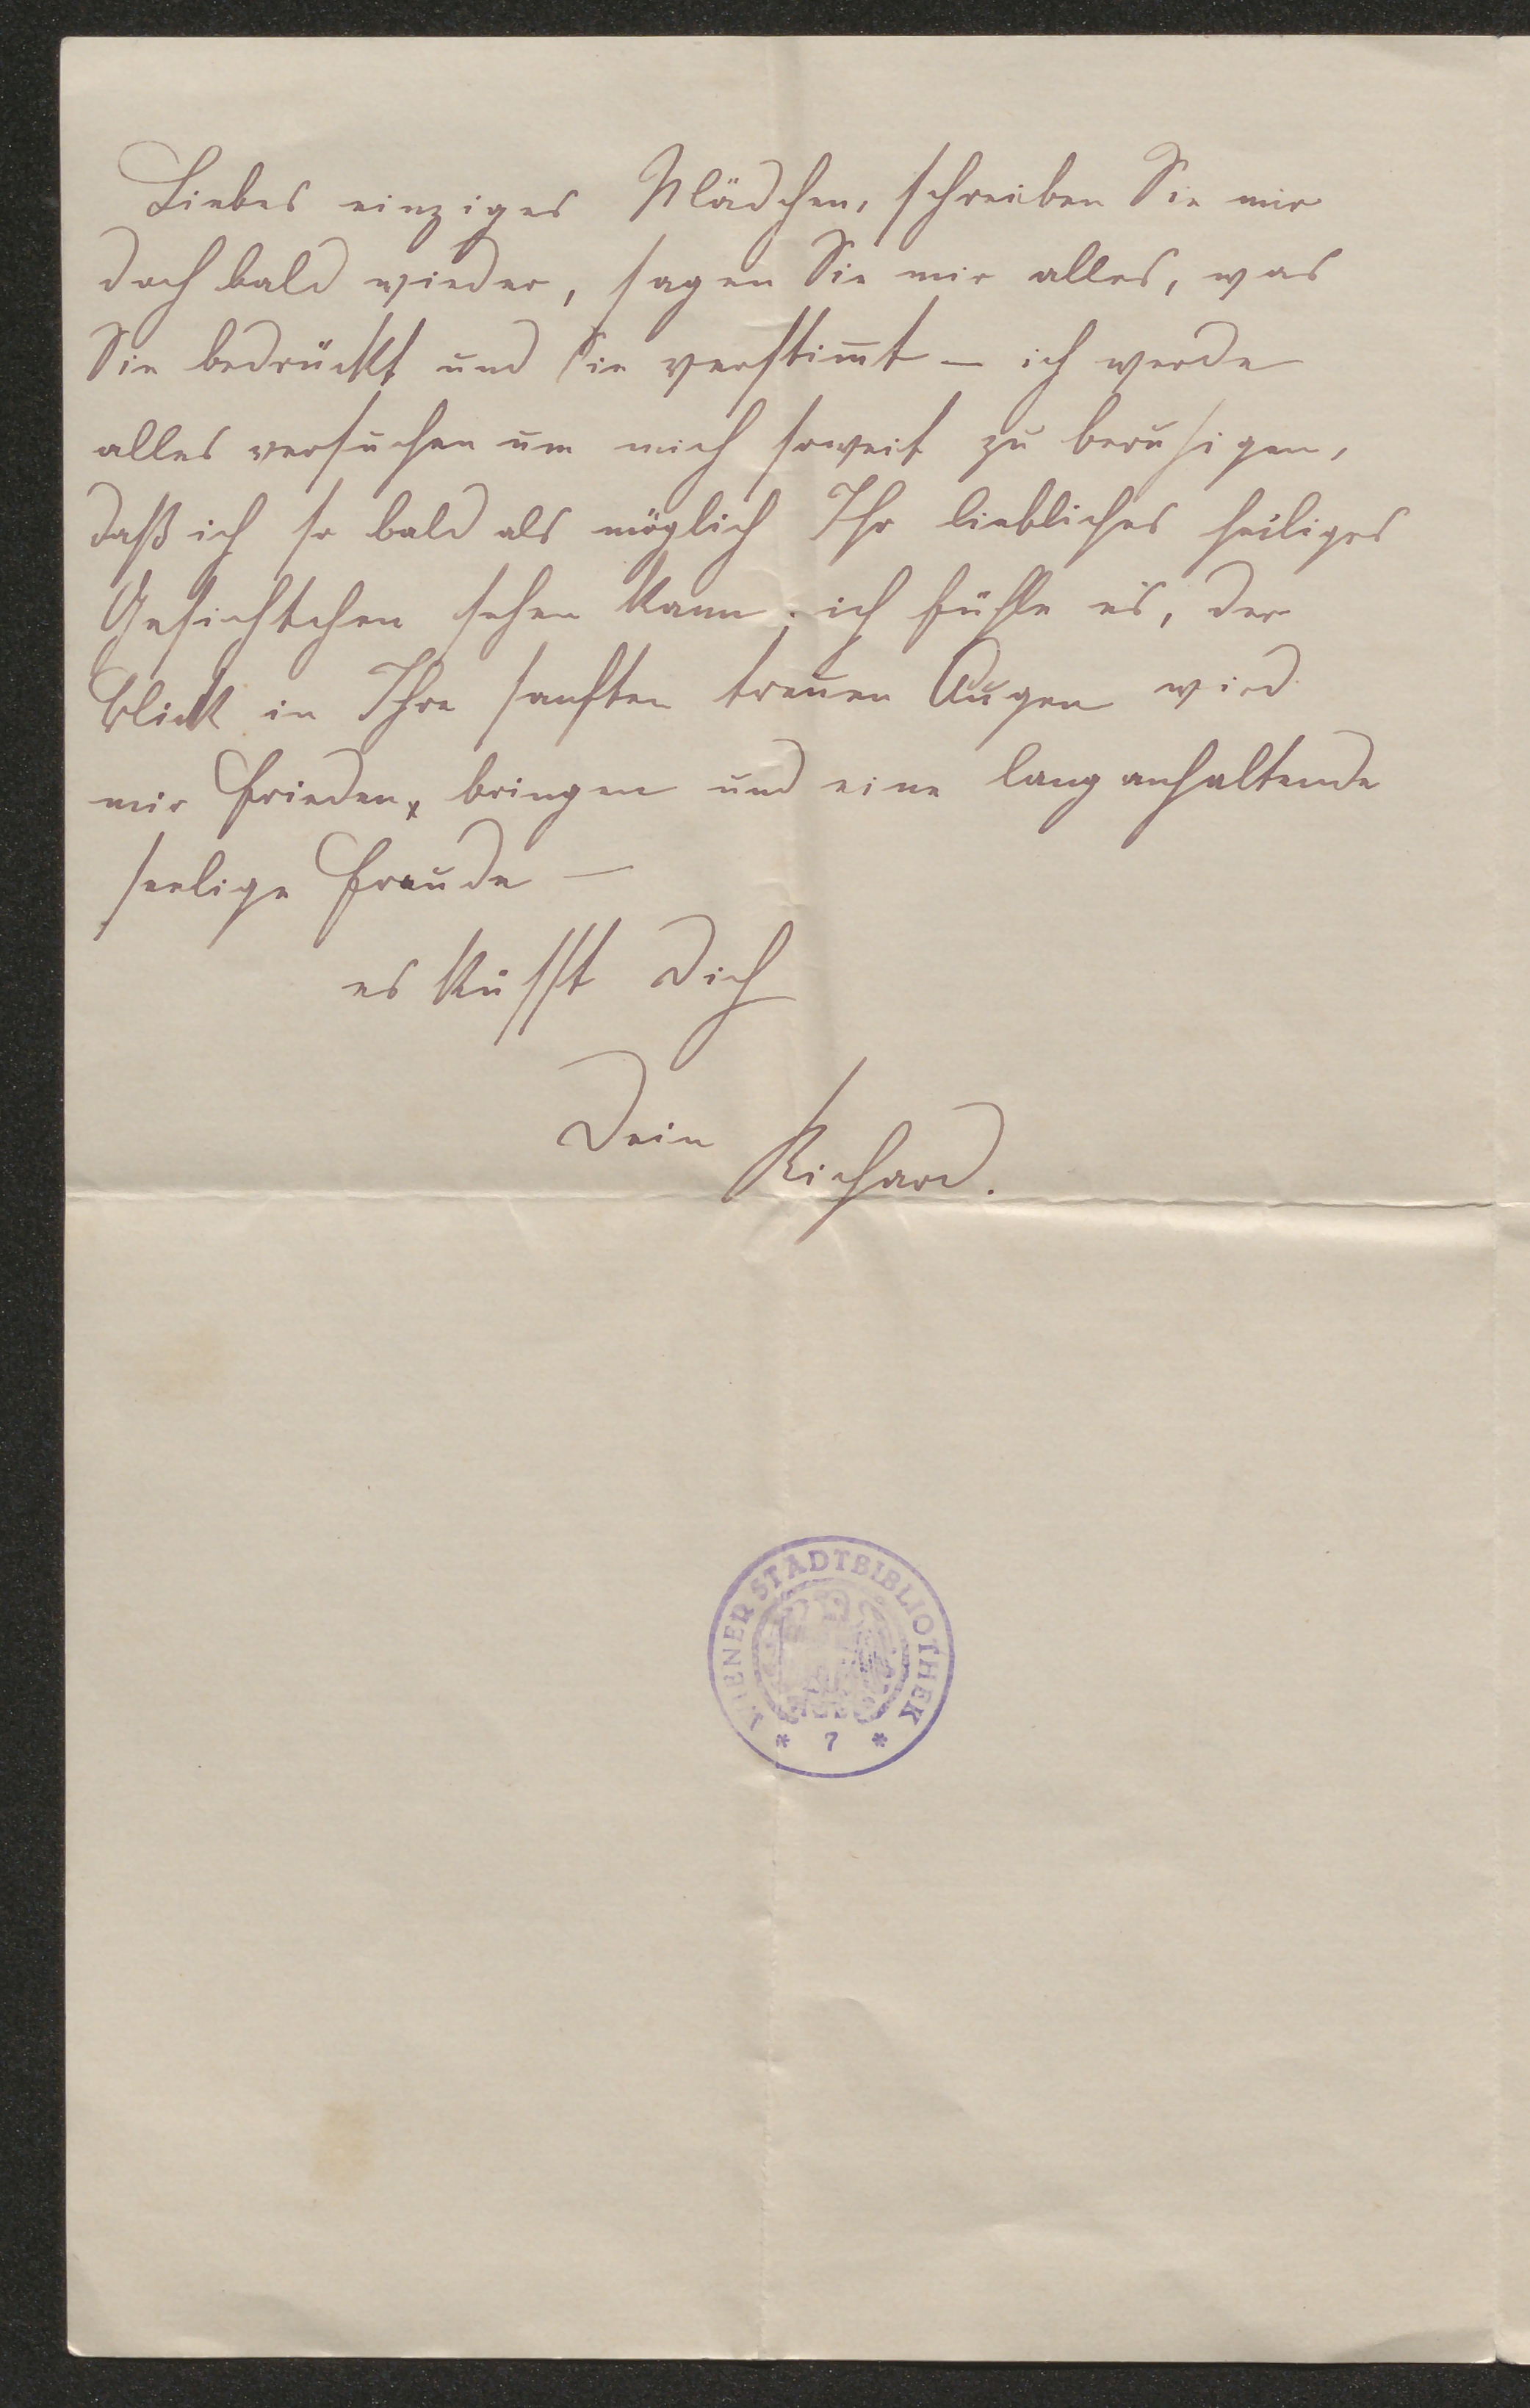 Liebes einziges Mädchen, schreiben Sie mir
doch bald wieder, sagen Sie mir alles, was
Sie bedrückt und Sie verstim̅t – ich werde
alles versuchen um mich soweit zu beruhigen,
daß ich so bald als möglich Ihr liebliches heiliges
Gesichtchen sehen kann; ich fühle es, der
Blick in Ihre sanften treuen Augen wird
mir Frieden bringen und eine lang anhaltende
seelige Freude –
es küsst Dich
Dein
Richard.
WIENER STADTBIBLIOTHEK
* 7 *